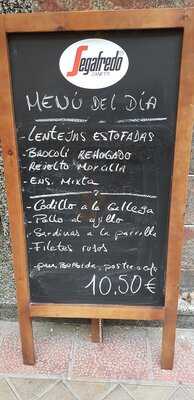 Segafredo
ZANETTI
MENÚ DEL DÍA
- LENTEJAS ESTOFADAS
- BROCOLI REHOGADO
- REVOLTO MORCILLA
- ENS. MIXTA
- Codillo a la Gallega
- Pollo al ajillo
- Sardinas a la parrilla
- Filetes rusos
pan, Bebida, postre o cafe
10,50€